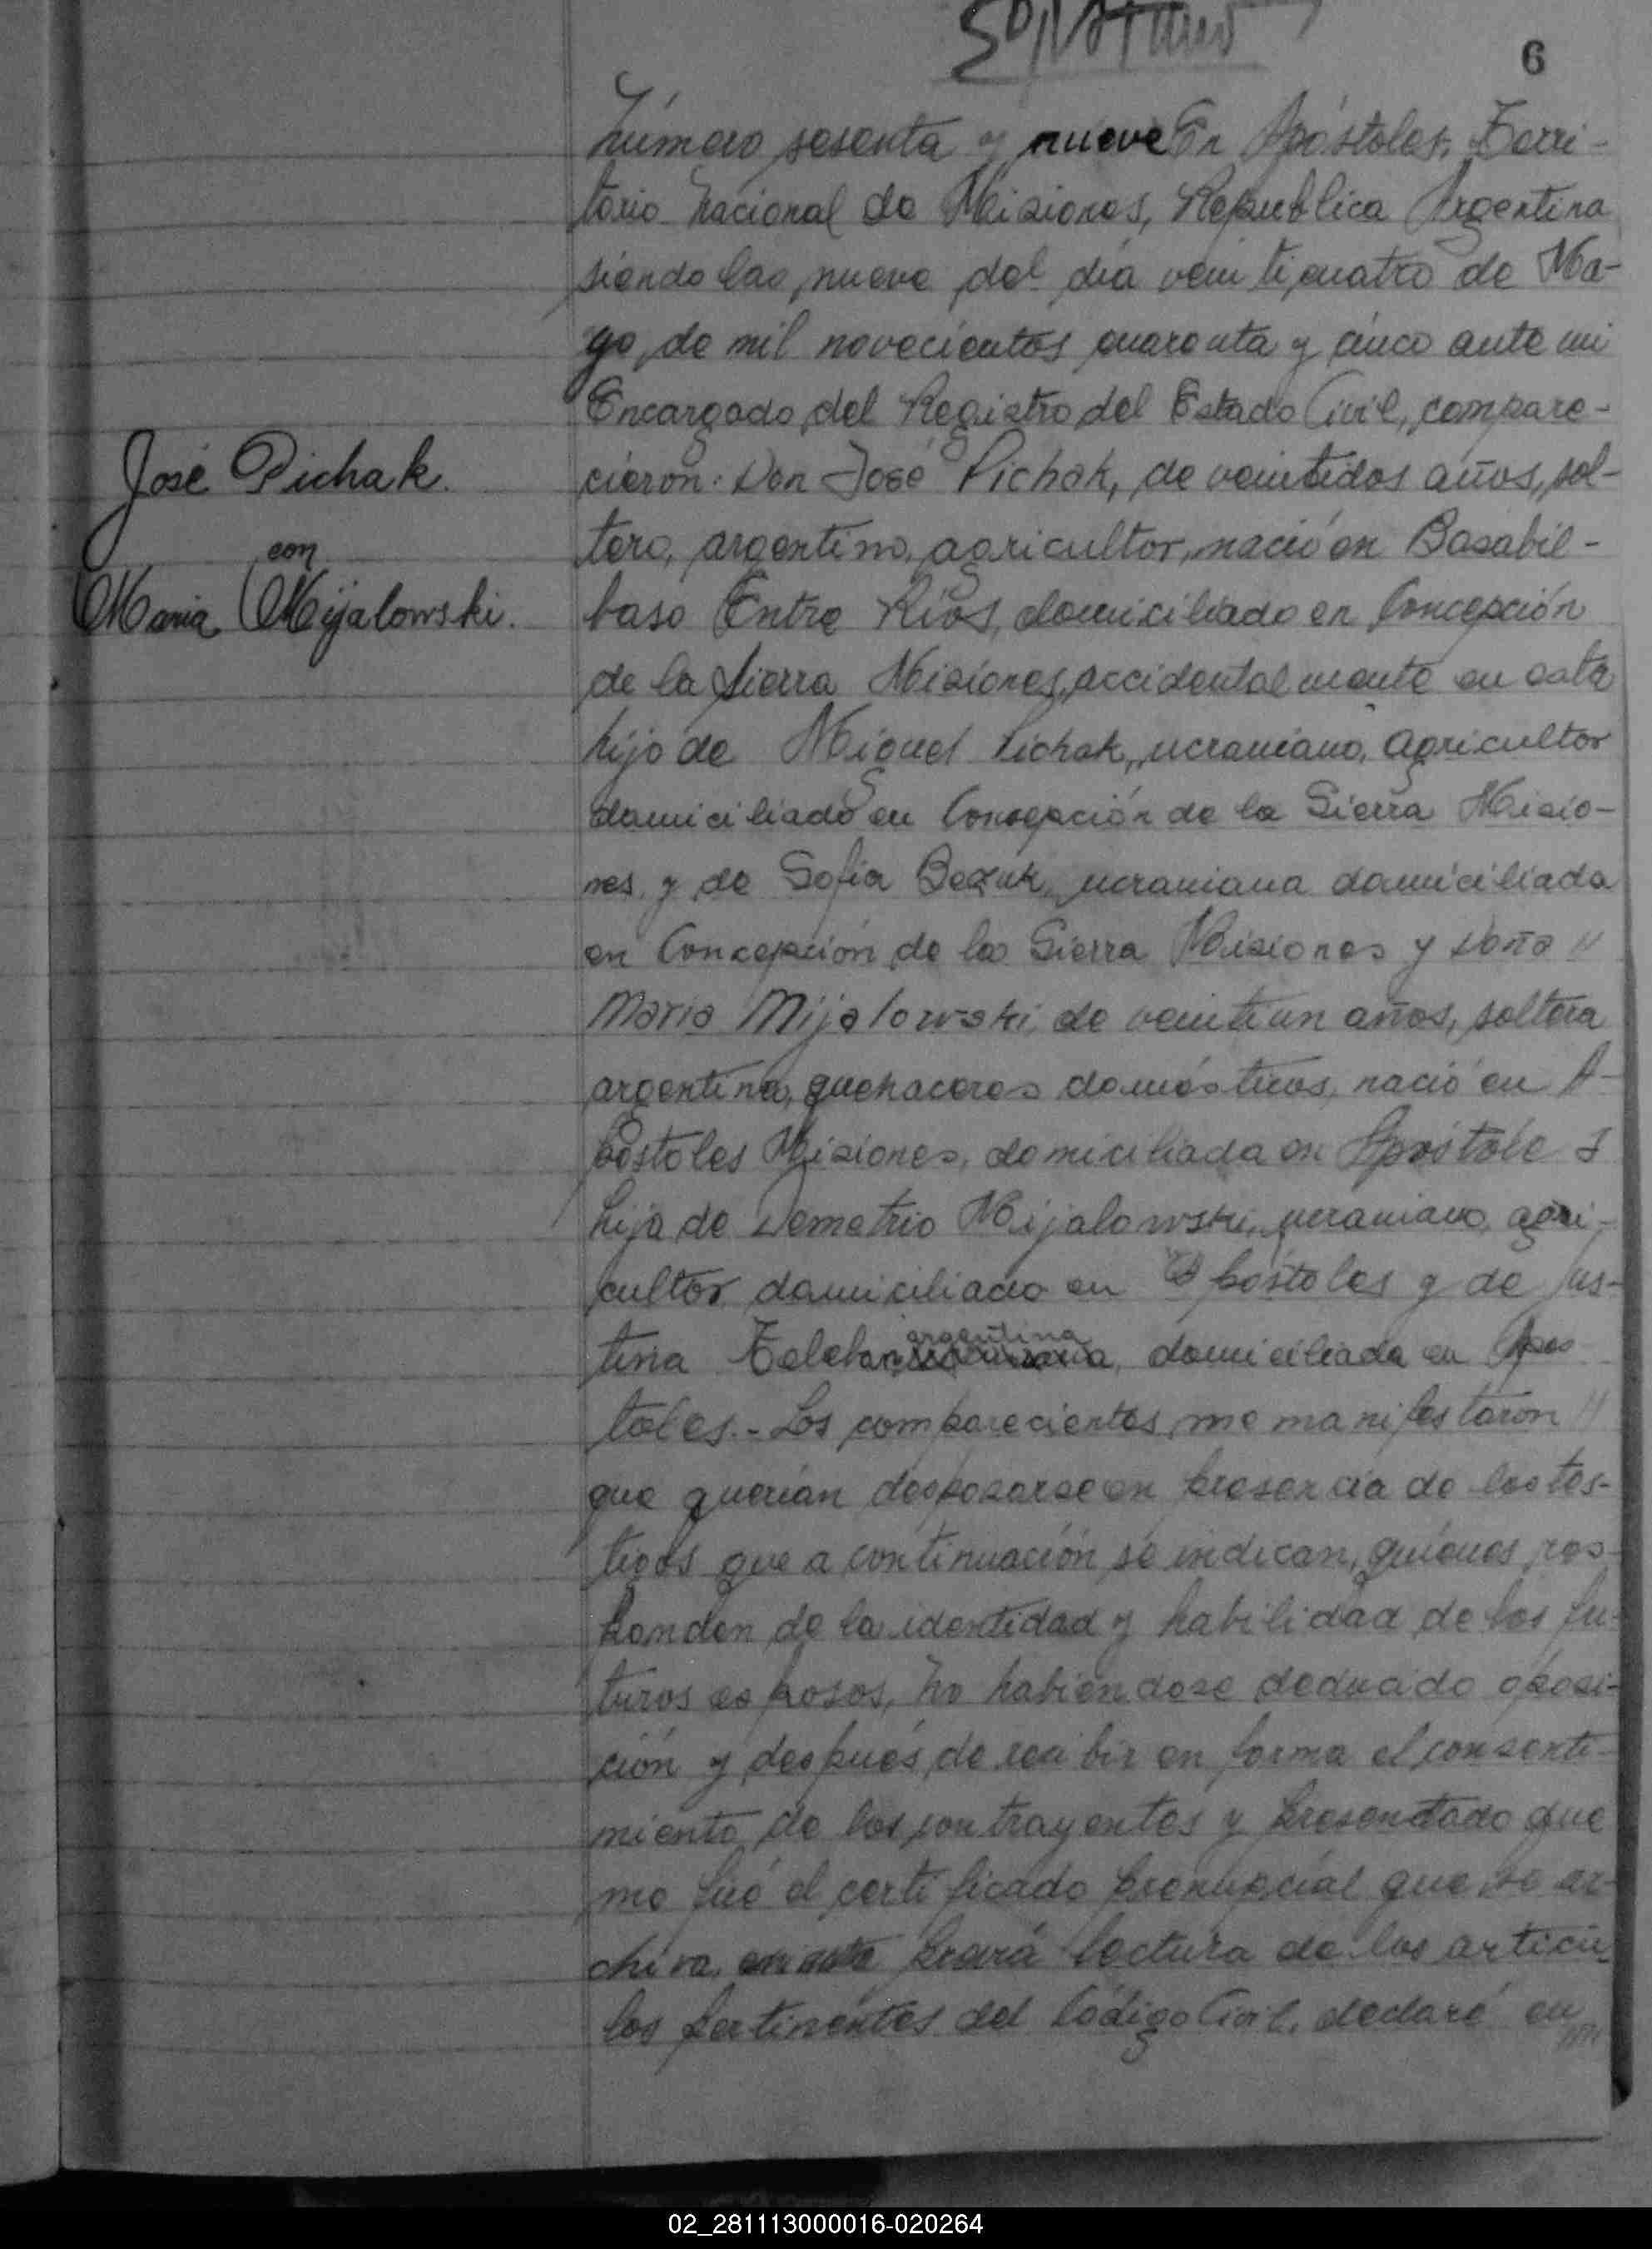 6
Número sesenta y nueve En Apóstoles, Terri-
torio Nacional de Misiones, Republica Argentina
siendo las nueve del día veinticuatro de Ma-
yo de mil novecientos cuarenta y cinco ante mi
Encargado del Registro del Estado Civil, compare-
José Pichak.
con
Maria Mijalowski.
cieron: Don José Pichak, de veintidos años, sol-
tero, argentino, agricultor, nació en Basabil-
baso Entre Ríos, domiciliado en Concepción
de la Sierra Misiones, accidentalmente en esta
hijo de Miguel Pichak, ucraniano, agricultor
domiciliado en Concepción de la Sierra Misio-
nes y de Sofia Bezuk, ucraniana domiciliada
en Concepción de la Sierra Misiones y Doña "
Maria Mijalowski de veintiun años, soltera
argentina, quehaceres domésticos, nació en A-
póstoles Misiones, domiciliada en Apóstoles
hija de Demetrio Mijalowski, ucraniano, agri-
cultor domiciliado en Apóstoles y de Jus-
tina argentina, domiciliada en Apos
toles.- Los comparecientes me manifestaron "
que querían desposarse en presencia de los tes-
tigos que a continuación se indican, quienes res-
ponden de la identidad y habilidad de los fu-
turos esposos, no habiéndose deducido oposi-
ción y después de recibir en forma el consenti-
miento de los contrayentes y presentado que
me fué el certificado prenupcial que se ar-
chiva previa lectura de los artícu-
los pertinentes del Código Civil, declaré en
02_281113000016-020264